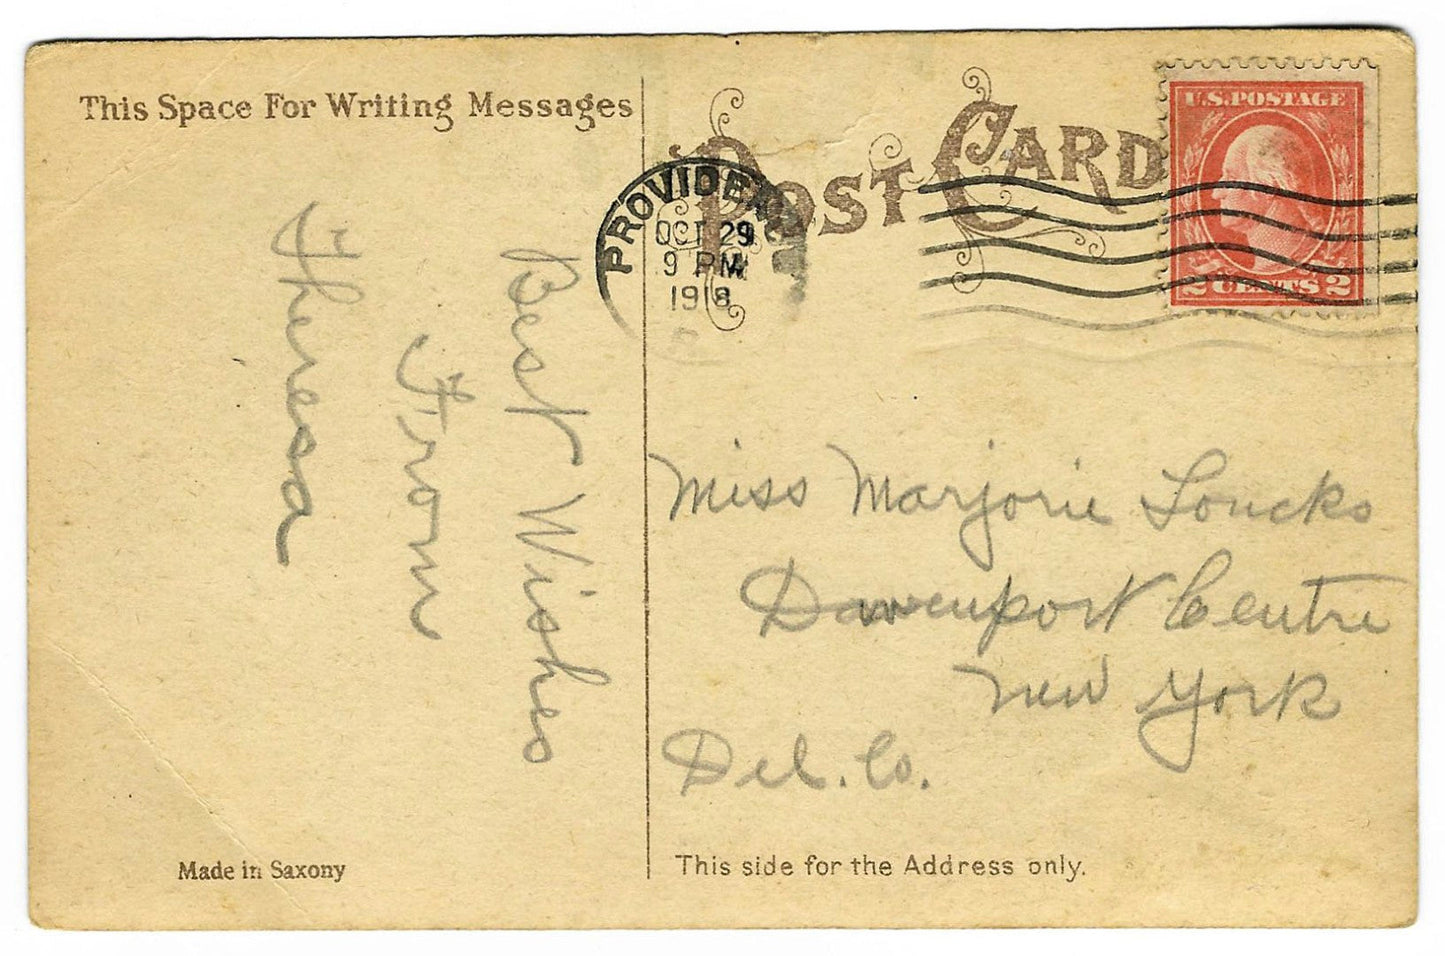 This Space For Writing Messages
POST CARD
U.S. POSTAGE
2 CENTS 2
PROVIDENCE
OCT 29
9 PM
1918
Best Wishes
From
Theresa
Miss Marjorie Loucks
Davenport Centre
New York
Del. Co.
Made in Saxony
This side for the Address only.